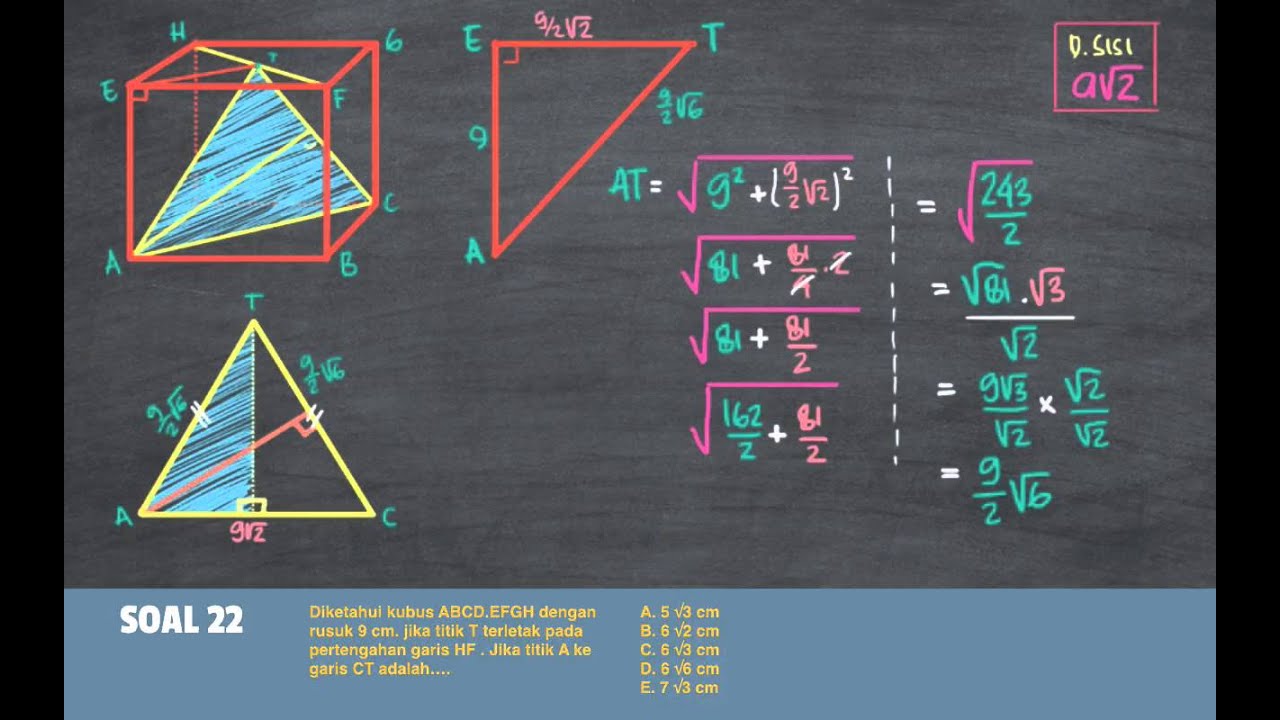 H
6
E
F
T
A
B
C
E
9/2√2
T
9
9/2√6
A
D.SISI
a√2
AT = √(9² + (9/2 √2)²)
√(81 + 81/4 . 2)
√(81 + 81/2)
√(162/2 + 81/2)
= √(243/2)
= √81 . √3 / √2
= 9√3/√2 × √2/√2
= 9/2 √6
T
9/2√6
9/2√6
A
C
9√2
SOAL 22
Diketahui kubus ABCD.EFGH dengan
rusuk 9 cm. jika titik T terletak pada
pertengahan garis HF . Jika titik A ke
garis CT adalah....
A. 5 √3 cm
B. 6 √2 cm
C. 6 √3 cm
D. 6 √6 cm
E. 7 √3 cm